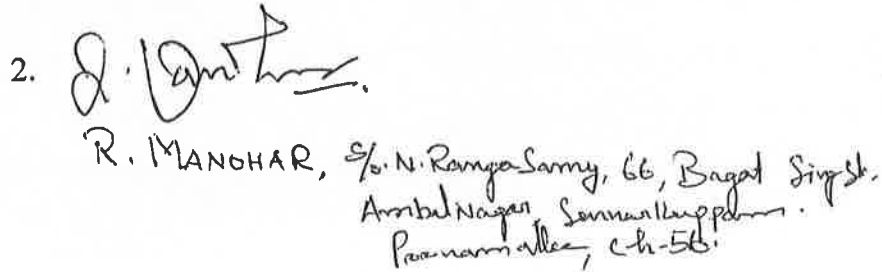 2.
R. MANOHAR, S/o. N. RangaSamy, 66, Bagat Sing St,
Ambal Nagar, Sennarkuppam.
Poonamallee, ch-56.